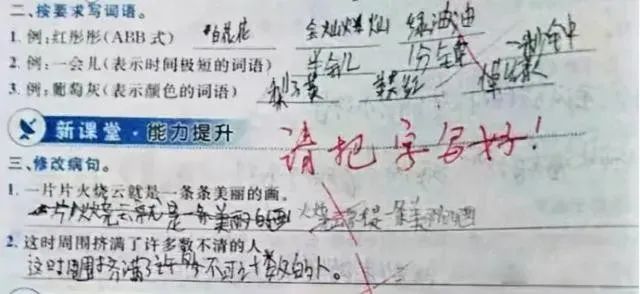 二、按要求写词语。
1. 例:红彤彤(ABB 式) 白花花 金灿灿 绿油油
2. 例:一会儿(表示时间极短的词语) 半会儿 1分钟
3. 例:葡萄灰(表示颜色的词语)
新课堂·能力提升
请把字写好!
三、修改病句。
1. 一片片火烧云就是一条条美丽的画。
一片火烧云就是一条美丽的画 火烧云就是一条美丽的画
2. 这时周围挤满了许多数不清的人。
这时周围挤满了许多